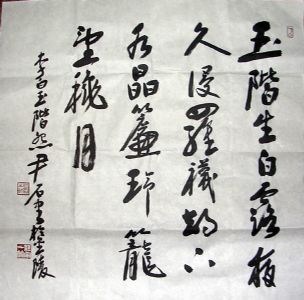 玉階生白露夜
久侵羅襪却下
水晶簾玲籠
望穐月
李白玉階怨尹石書於金陵